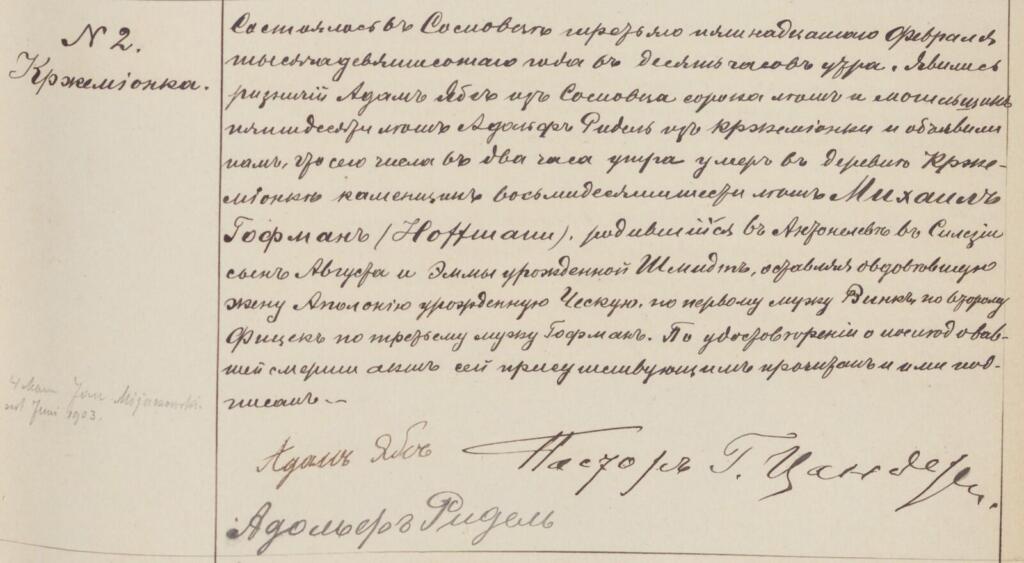 N 2.
Кржеміонка.
Состоялось въ Сосновцѣ третьяго пятнадцатаго Февраля
тысяча девятисотаго года въ десять часовъ утра. Явились
ризничій Адамъ Ябсъ изъ Сосновца сорока лѣтъ и могильщикъ
пятидесяти лѣтъ Адольфъ Ридель изъ Кржеміонки и объявили
намъ, что сего числа въ два часа утра умеръ въ деревнѣ Крже-
міонкѣ каменщикъ восьмидесятишести лѣтъ Михаилъ
Гофманъ (Hoffmann), родившійся въ Антонелевѣ въ Силезіи
сынъ Августа и Эммы урожденной Шмидтъ, оставляя овдовѣвшую
жену Аполонію урожденную Ческую, по первому мужу Винкъ, по второму
Фицекъ по третьему мужу Гофманъ. По удостовѣреніи о послѣдовав-
шей смерти актъ сей присутствующимъ прочитанъ и ими под-
писанъ.-
4 Mann Jan Mijanowski
Juni 1903.
Адамъ Ябсъ
Пасторъ Г. Цандеръ.
Адольфъ Ридель